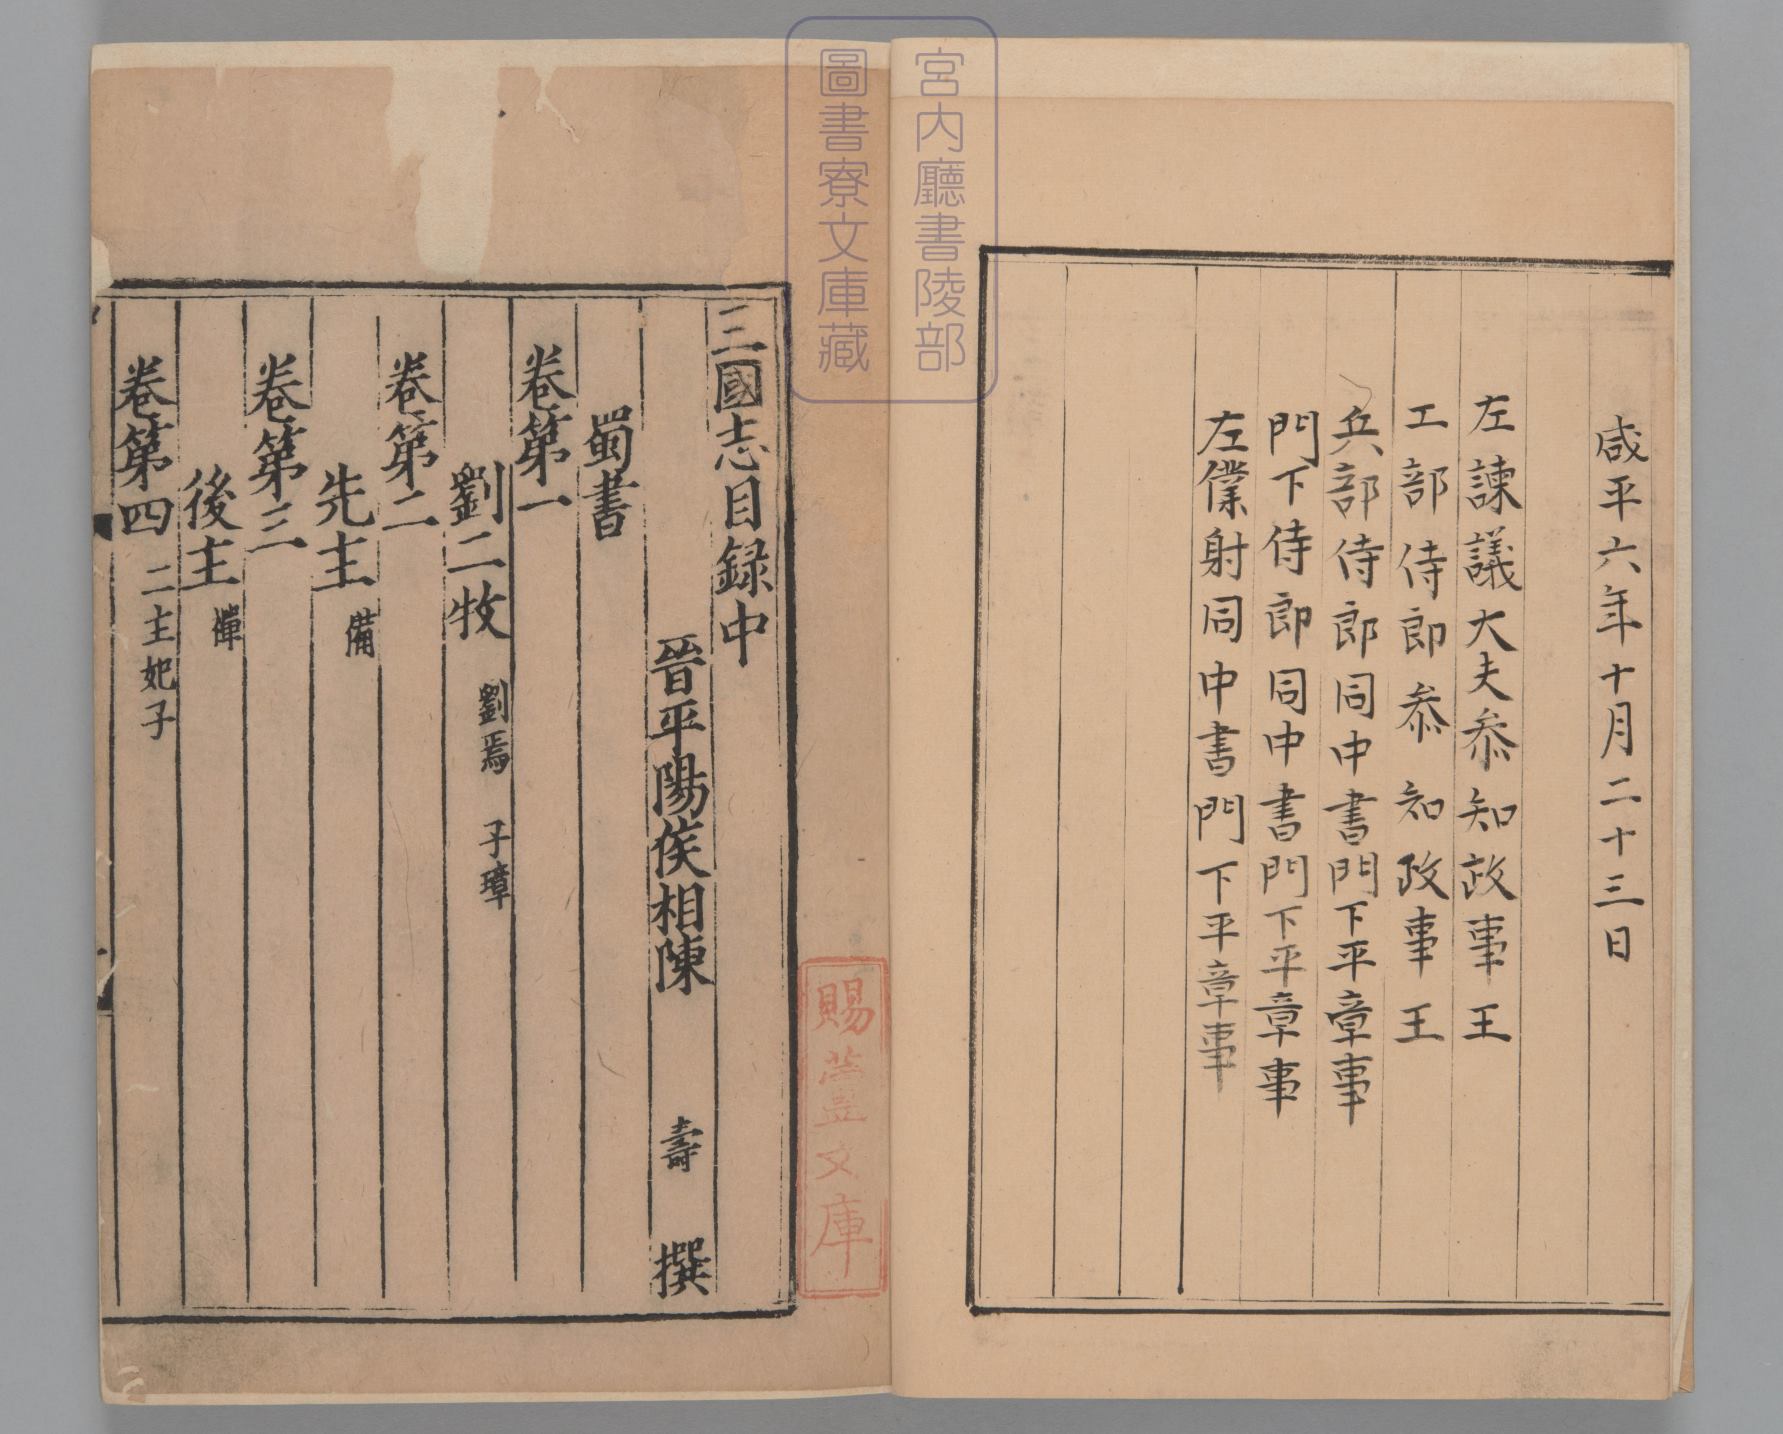 咸平六年十月二十三日
左諫議大夫叅知政事王
工部侍郎叅知政事王
兵部侍郎同中書門下平章事
門下侍郎同中書門下平章事
左僕射同中書門下平章事
宮内廳書陵部
圖書寮文庫藏
賜蘆文庫
三國志目録中
晉平陽侯相陳 壽 撰
蜀書
卷第一
劉二牧 劉焉 子璋
卷第二
先主 備
卷第三
後主 禪
卷第四 二主妃子